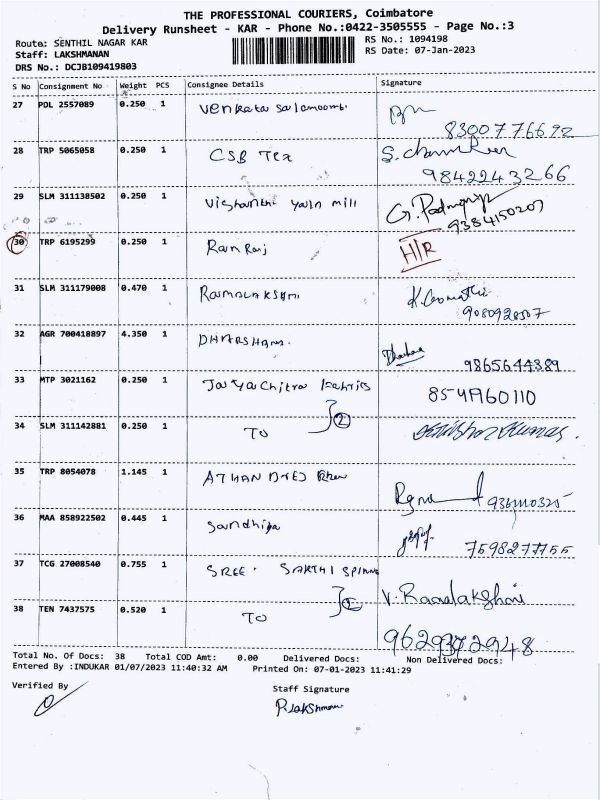 THE PROFESSIONAL COURIERS, Coimbatore
Delivery Runsheet - KAR - Phone No.:0422-3505555 - Page No.:3
Route: SENTHIL NAGAR KAR
RS No.: 1094198
Staff: LAKSHMANAN
RS Date: 07-Jan-2023
DRS No.: DCJB109419803
S No Consignment No Weight PCS Consignee Details Signature
27 PDL 2557089 0.250 1
8300776692
28 TRP 5065058 0.250 1 CSB Tex
9842243266
29 SLM 311138502 0.250 1 mill
9384150207
30 TRP 6195299 0.250 1 Ram Raj H/R
31 SLM 311179008 0.470 1 RAMALAKSHMI
9080928507
32 AGR 700418897 4.350 1
9865644389
33 MTP 3021162 0.250 1 Jaya Chitra Fabrics
34 SLM 311142881 0.250 1 TO 2
35 TRP 8054078 1.145 1
36 MAA 858922502 0.445 1 Sandhiya
7598277755
37 TCG 27008540 0.755 1 SREE SAKTHI V. Ramalakshmi
38 TEN 7437575 0.520 1 TO
Total No. Of Docs: 38 Total COD Amt: 0.00 Delivered Docs: Non Delivered Docs:
Entered By :INDUKAR 01/07/2023 11:40:32 AM Printed On: 07-01-2023 11:41:29
Verified By
Staff Signature